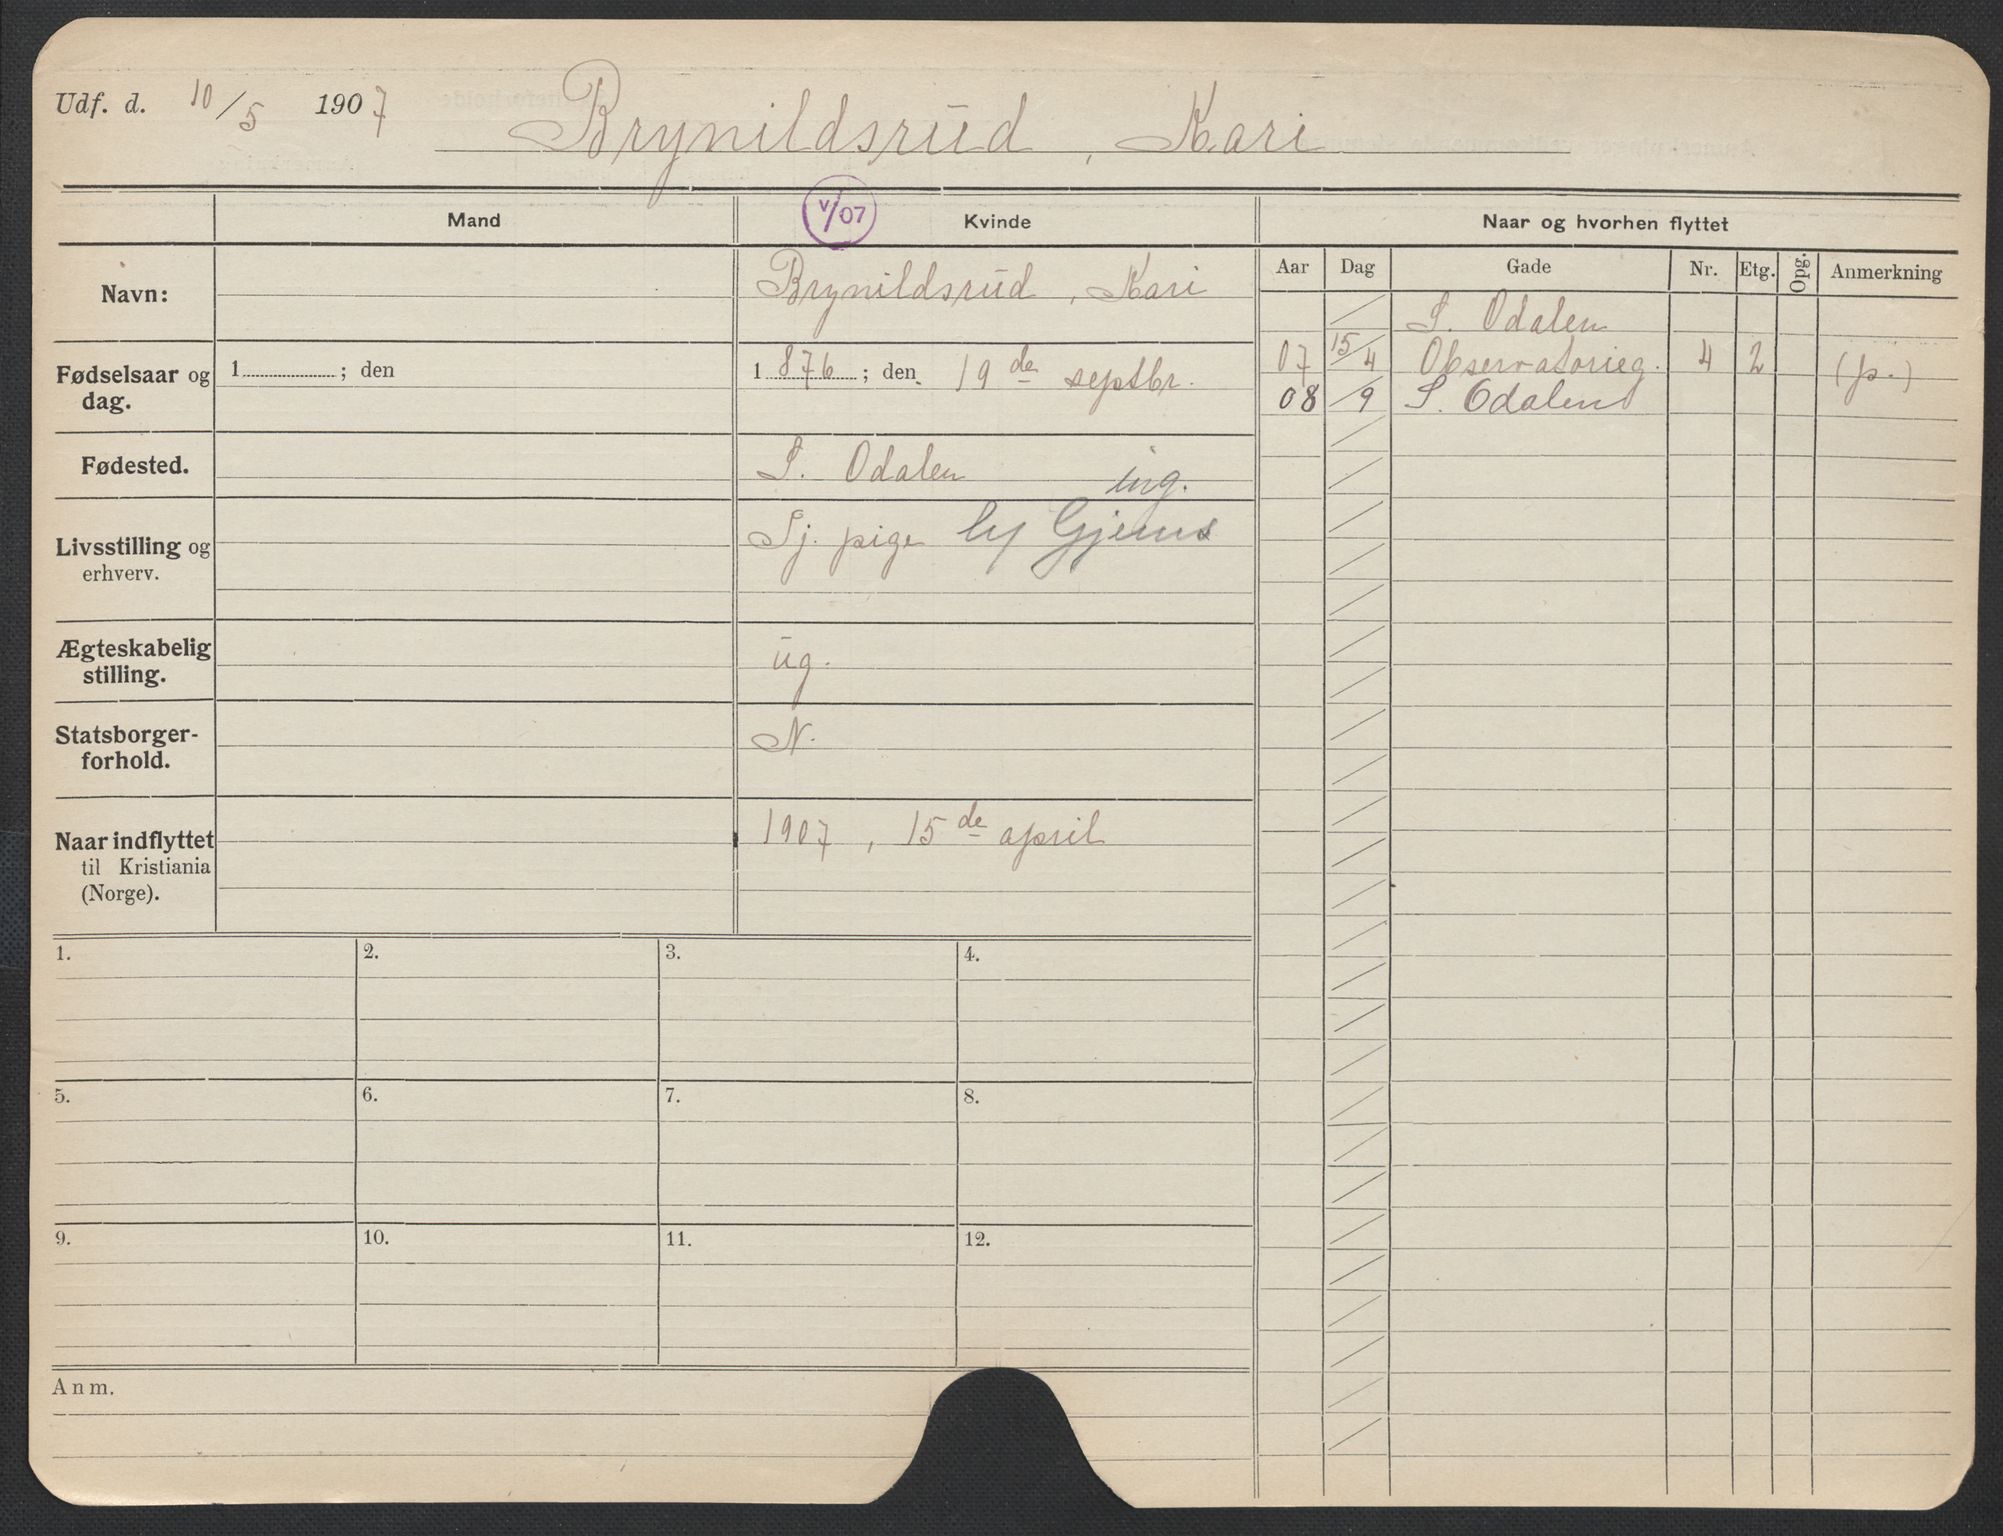 Udf. d. 10/5 1907 Brynildsrud, Kari
Mand V/07 Kvinde Naar og hvorhen flyttet
Aar Dag Gade Nr. Etg. Opg. Anmerkning
Navn: Brynildsrud, Kari
S. Odalen
Fødselsaar og dag. 1 ; den 1876 ; den 19de septbr.
07 15/4 Observatorieg. 4 2 (p.)
08 /9 S. Odalen
Fødested. S. Odalen
ing.
Livsstilling og erhverv. Tj. pige Gjems
Ægteskabelig stilling. ug.
Statsborger-
forhold. N.
Naar indflyttet 1907, 15de april
til Kristiania
(Norge).
1. 2. 3. 4.
5. 6. 7. 8.
9. 10. 11. 12.
Anm.